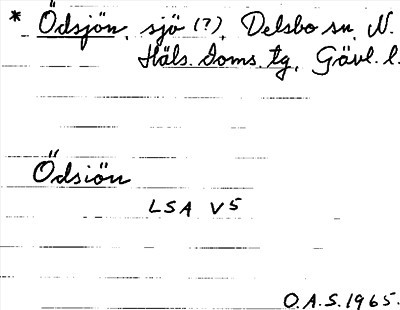 * Ödsjön, sjö (?), Delsbo sn, N.
Häls. doms. tg, Gävl. l.
Ödsiön
LSA V5
O.A.S. 1965.